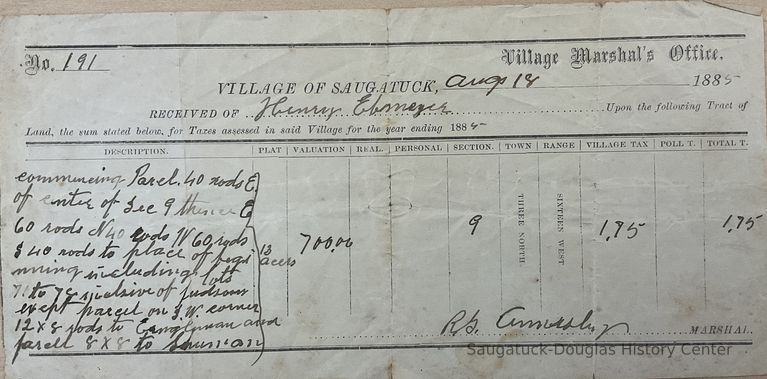 No. 191
Village Marshal's Office.
VILLAGE OF SAUGATUCK, Aug 18 1885
RECEIVED OF Henry Ebmeyer Upon the following Tract of
Land, the sum stated below, for Taxes assessed in said Village for the year ending 1885
DESCRIPTION. PLAT VALUATION REAL. PERSONAL SECTION. TOWN RANGE VILLAGE TAX POLL T. TOTAL T.
commencing Parcl. 40 rods E
of center of Sec 9 thence E
60 rods N 40 rods W 60 rods
S 40 rods to place of begi
nning including lots
71 to 78 inclusive of Judsons
except parcel on S.W. corner
12 x 8 rods to and
parcell 8 x 8 to
13 acers
700.00
9
THREE NORTH.
SIXTEEN WEST
1,75
1,75
MARSHAL.
Saugatuck-Douglas History Center